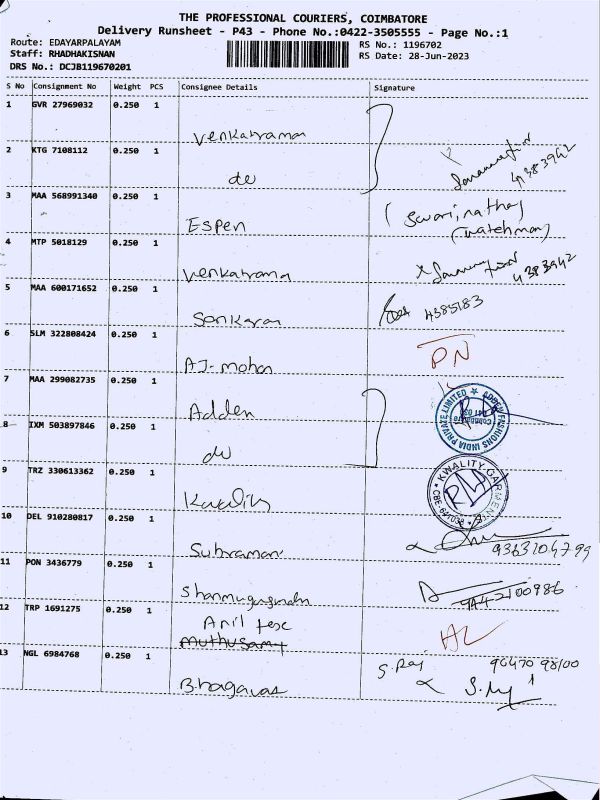 THE PROFESSIONAL COURIERS, COIMBATORE
Delivery Runsheet - P43 - Phone No.:0422-3505555 - Page No.:1
Route: EDAYARPALAYAM RS No.: 1196702
Staff: RHADHAKISNAN RS Date: 28-Jun-2023
DRS No.: DCJB119670201
S No Consignment No Weight PCS Consignee Details Signature
1 GVR 27969032 0.250 1
Venkatraman
2 KTG 7108112 0.250 1
do 4383942
3 MAA 568991340 0.250 1
Espen (Swaminathan)
(watchman)
4 MTP 5018129 0.250 1
Venkatrama 4383942
5 MAA 600171652 0.250 1
Sankaran 4385183
6 SLM 322808424 0.250 1
AJ-mohan PN
7 MAA 299082735 0.250 1
Adden
8 IXM 503897846 0.250 1
do
9 TRZ 330613362 0.250 1
KWALITY GARMENT
CBE-641038
10 DEL 910280817 0.250 1
Subramani
11 PON 3436779 0.250 1
Shanmugasundam 944-2100986
12 TRP 1691275 0.250 1
Anil tex
Muthusamy
13 NGL 6984768 0.250 1
S. Raj 96470 98100
Bhagavas